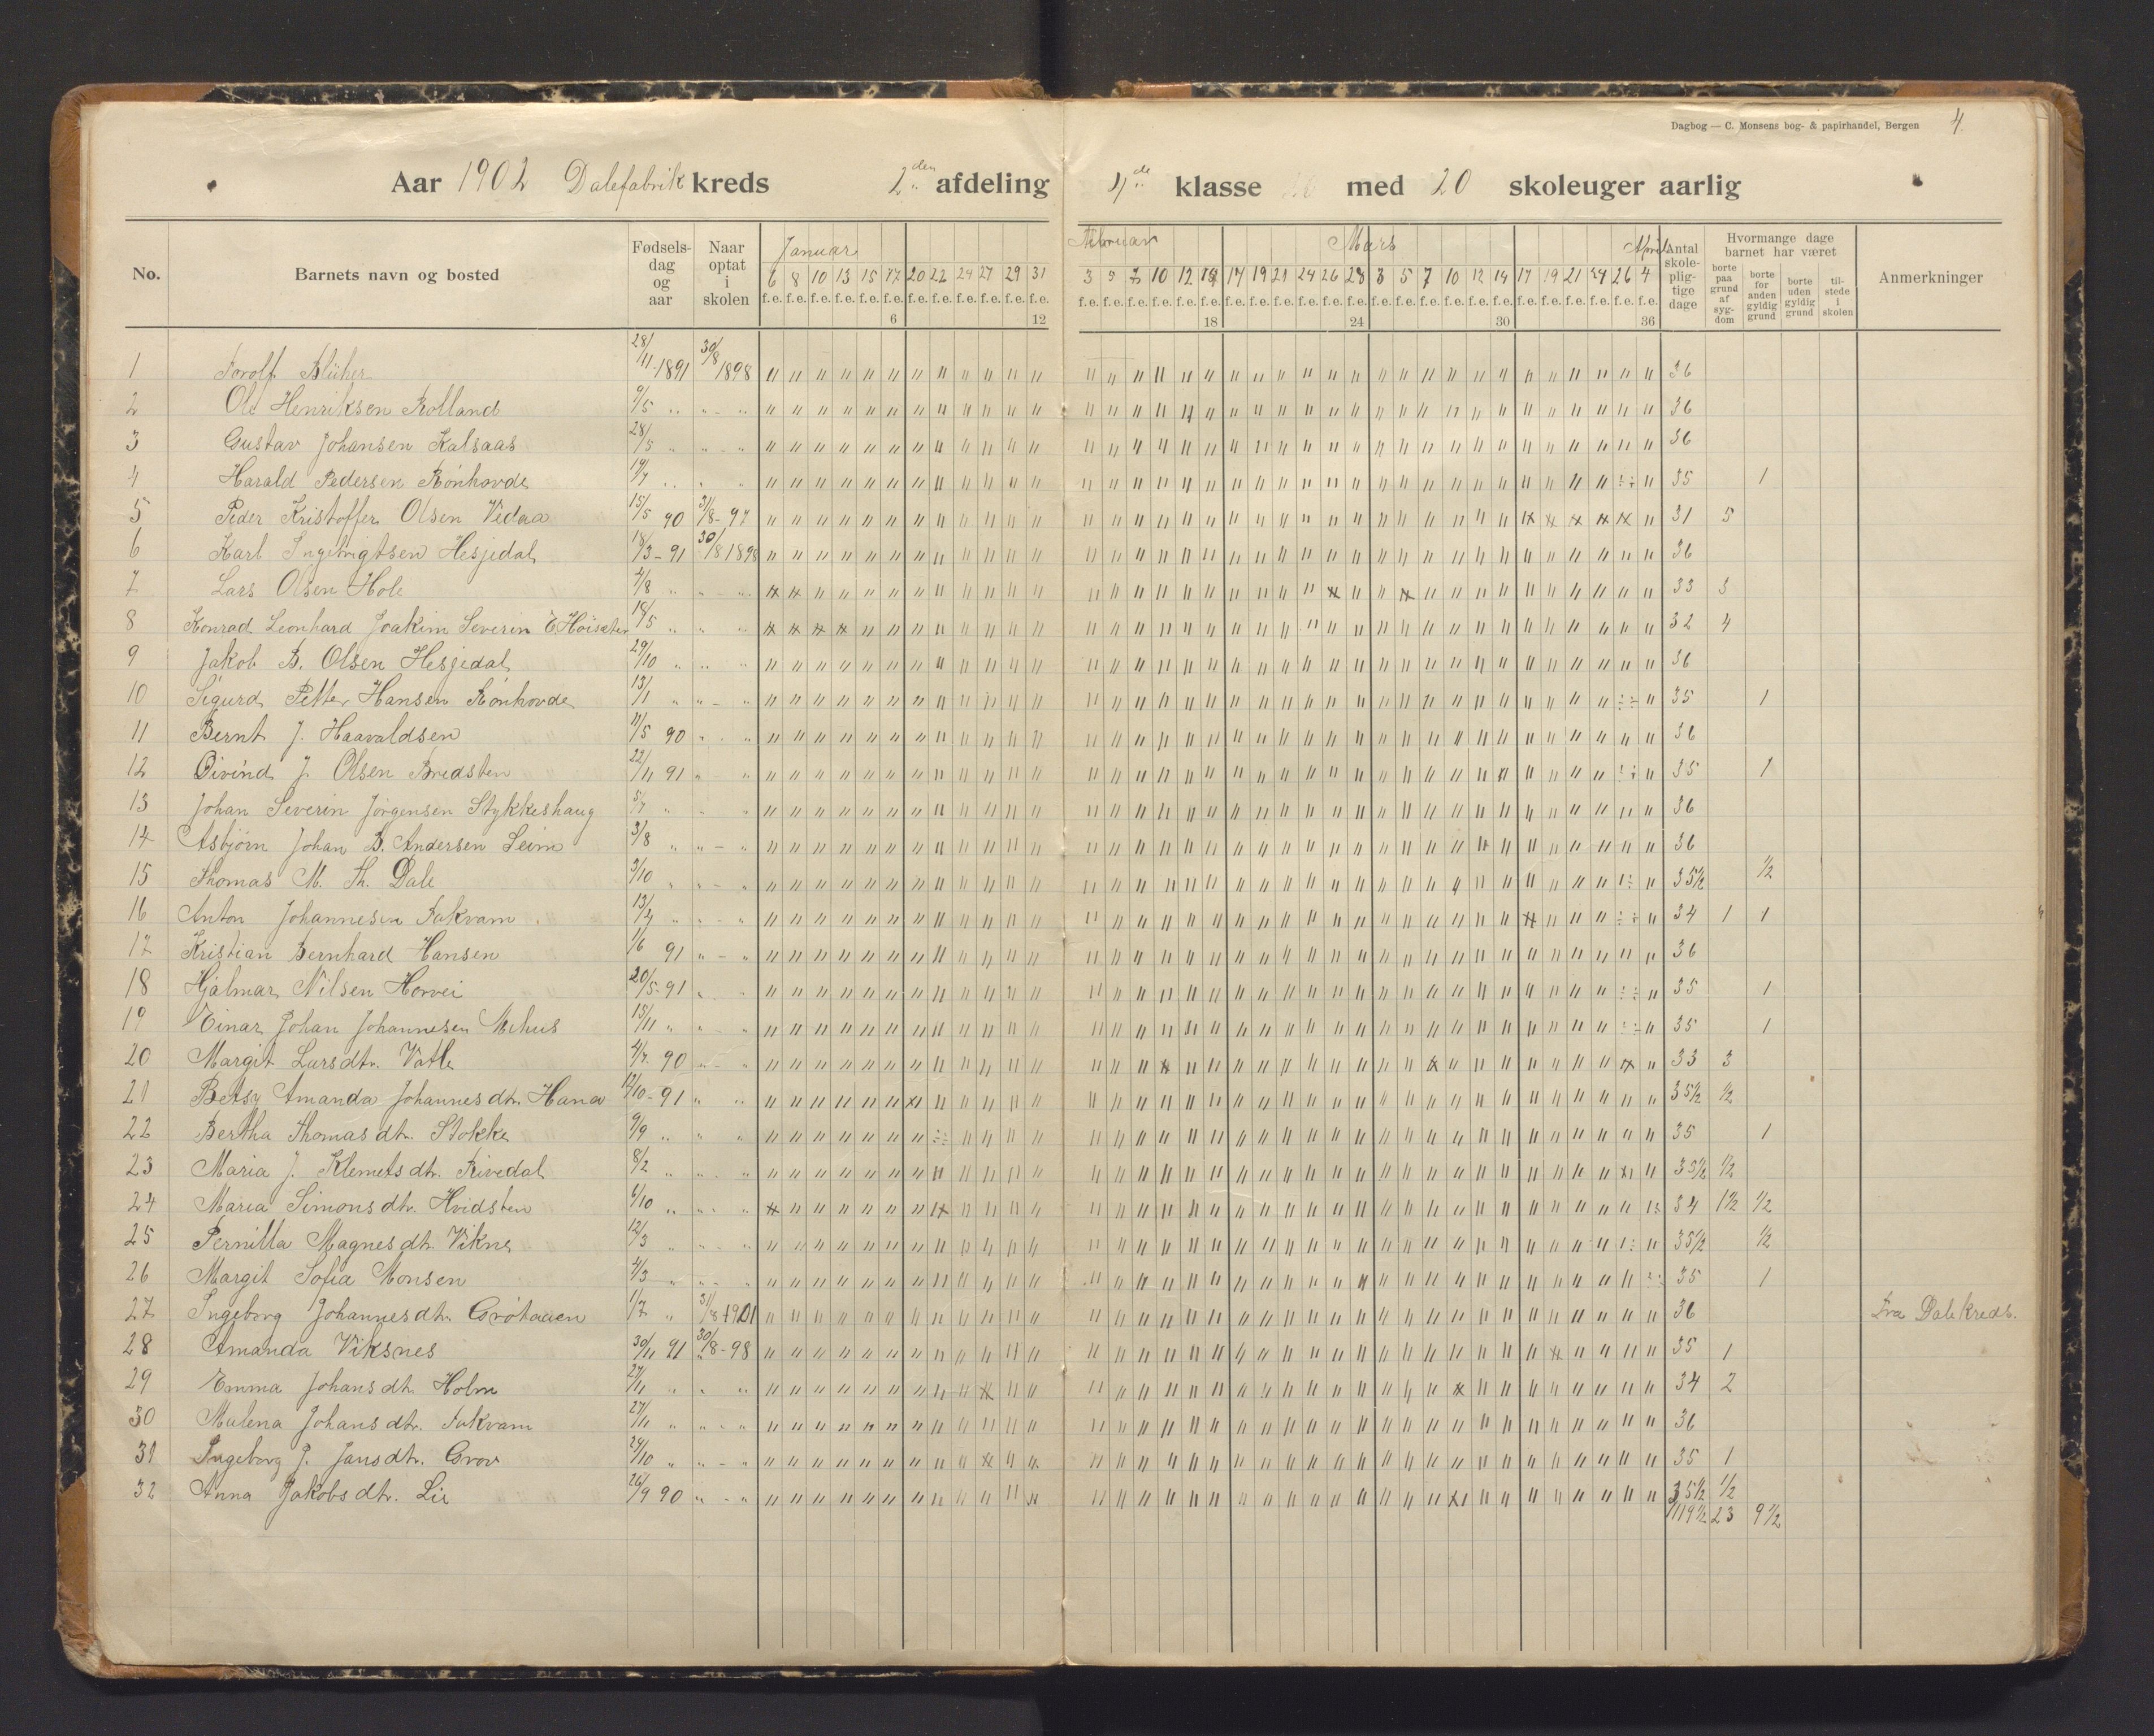 Dagbog — C. Monsens bog- & papirhandel, Bergen 4
Aar 1902 Dalefabrik kreds 2den afdeling 4de klasse med 20 skoleuger aarlig
No. Barnets navn og bosted Fødselsdag og aar Naar optat i skolen Antal skolepligtige dage Hvormange dage barnet har været Anmerkninger
borte paa grund af sygdom borte for anden gyldig grund borte uden gyldig grund tilstede i skolen
Januar Februar Marts April
6 8 10 13 15 17 20 22 24 27 29 31 3 5 7 10 12 14 17 19 21 24 26 28 3 5 7 10 12 14 17 19 21 24 26 4
f.e. f.e. f.e. f.e. f.e. f.e. f.e. f.e. f.e. f.e. f.e. f.e. f.e. f.e. f.e. f.e. f.e. f.e. f.e. f.e. f.e. f.e. f.e. f.e. f.e. f.e. f.e. f.e. f.e. f.e. f.e. f.e. f.e. f.e. f.e. f.e.
6 12 18 24 30 36
1 Torolf Blüher 28/11-1891 30/8 1898 36
2 Ole Henriksen Rolland 9/5 " " - " 36
3 Gustav Johansen Kalsaas 28/5 " " - " 36
4 Harald Pedersen Rönhovde 19/7 " " " 35 1
5 Peder Kristoffer Olsen Vedaa 15/5 90 31/8-97 31 5
6 Karl Ingebrigtsen Hesjedal 18/3-91 30/8 1898 36
7 Lars Olsen Hole 4/8 " " - " 33 3
8 Konrad Leonhard Joakim Severin E. Höisæter 18/5 " " " 32 4
9 Jakob B. Olsen Hesjedal 29/10 " " " 36
10 Sigurd Petter Hansen Rönhovde 13/1 " " - " 35 1
11 Bernt J. Haavaldsen 11/5 90 " " 36
12 Öivind J. Olsen Bredsten 22/11 91 " " 35 1
13 Johan Severin Jörgensen Stykkeshaug 5/7 " " " 36
14 Asbjörn Johan B. Andersen Leim 3/8 " " - " 36
15 Thomas M. Th. Dale 3/10 " " - " 35 1/2 1/2
16 Anton Johannesen Fakvam 13/7 " " - " 34 1 1
17 Kristian Bernhard Hansen 1/6 91 " - " 36
18 Hjalmar Nilsen Horvei 20/5-91 " " 35 1
19 Einar Johan Johannesen Mehus 15/11 " " - " 35 1
20 Margit Larsdtr. Vatle 4/7 90 " - " 33 3
21 Betsy Amanda Johannesdtr. Hana 12/10-91 " " 35 1/2 1/2
22 Bertha Thomasdtr. Stokke 9/9 " " " 35 1
23 Maria J. Klemetsdtr. Rivedal 8/2 " " " 35 1/2 1/2
24 Maria Simonsdtr. Hvidsten 6/10 " " " 34 1 1/2 1/2
25 Pernilla Magnesdtr. Vikne 12/3 " " - " 35 1/2 1/2
26 Margit Sofia Monsen 4/3 " " - " 35 1
27 Ingeborg Johannesdtr. Grötaaen 1/7 " 31/8 1901 36 Fra Dale kreds.
28 Amanda Viksnes 30/11 91 30/8-98 35 1
29 Emma Johansdtr. Holm 27/11 " " " 34 2
30 Malena Johansdtr. Fakvam 27/11 " " - " 36
31 Ingeborg J. Jansdtr. Grov 24/10 " " - " 35 1
32 Anna Jakobsdtr. Lie 26/9 90 " - " 35 1/2 1/2
1119 1/2 23 9 1/2